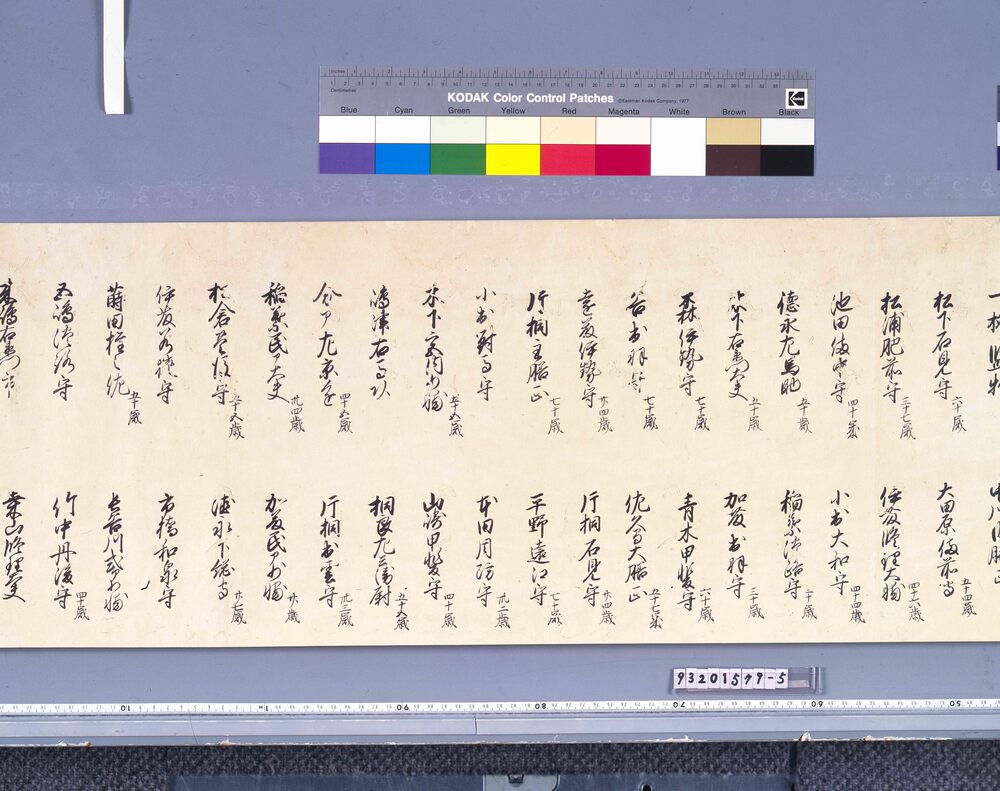 Inches
Centimetres
KODAK Color Control Patches ©Eastman Kodak Company, 1977
Blue Cyan Green Yellow Red Magenta White Brown Black
松下石見守 六十歳
松浦肥前守 三十七歳
池田備中守 四十歳
徳永左馬助 五十歳
木下右衛門大夫 五十歳
森伊勢守 七十歳
谷出羽守 七十歳
遠藤伊勢守 廿四歳
片桐主膳正 七十歳
小出対馬守
木下宮内少輔 五十五歳
嶋津右馬頭
今川左京亮 四十五歳
稲葉民部大夫 卅四歳
板倉 守 五十五歳
伊藤若狭守
蒔田権之佐 五十歳
五嶋淡路守
大田原備前守 五十四歳
伊藤修理大輔 四十八歳
小出大和守 四十四歳
稲葉淡路守 二十歳
加藤出羽守 三十歳
青木甲斐守 六十歳
佐久間大膳正 五十七歳
片桐石見守 廿四歳
平野遠江守 七十歳
本田周防守 卅二歳
山崎甲斐守 四十歳
桐 左兵衛尉 五十五歳
片桐出雲守 卅三歳
加藤民部少輔 廿歳
徳永下総守 廿七歳
市橋和泉守
長谷川式部少輔
竹中丹後守 四十歳
桑山修理大夫
93201579-5
10 90 80 70 60 50